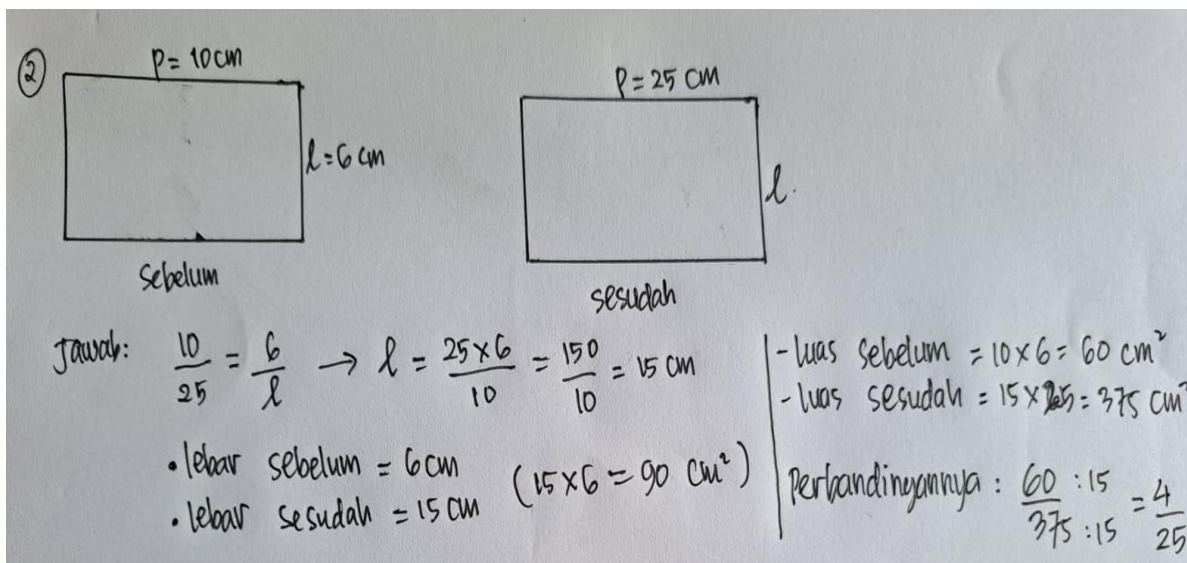 ②
p = 10 cm
l = 6 cm
Sebelum
p = 25 cm
l.
sesudah
Jawab: 10/25 = 6/l → l = 25 × 6/10 = 150/10 = 15 cm
• lebar sebelum = 6 cm
• lebar sesudah = 15 cm
(15 × 6 = 90 cm²)
- luas sebelum = 10 × 6 = 60 cm²
- luas sesudah = 15 × 25 = 375 cm²
Perbandingannya : 60 : 15/375 : 15 = 4/25